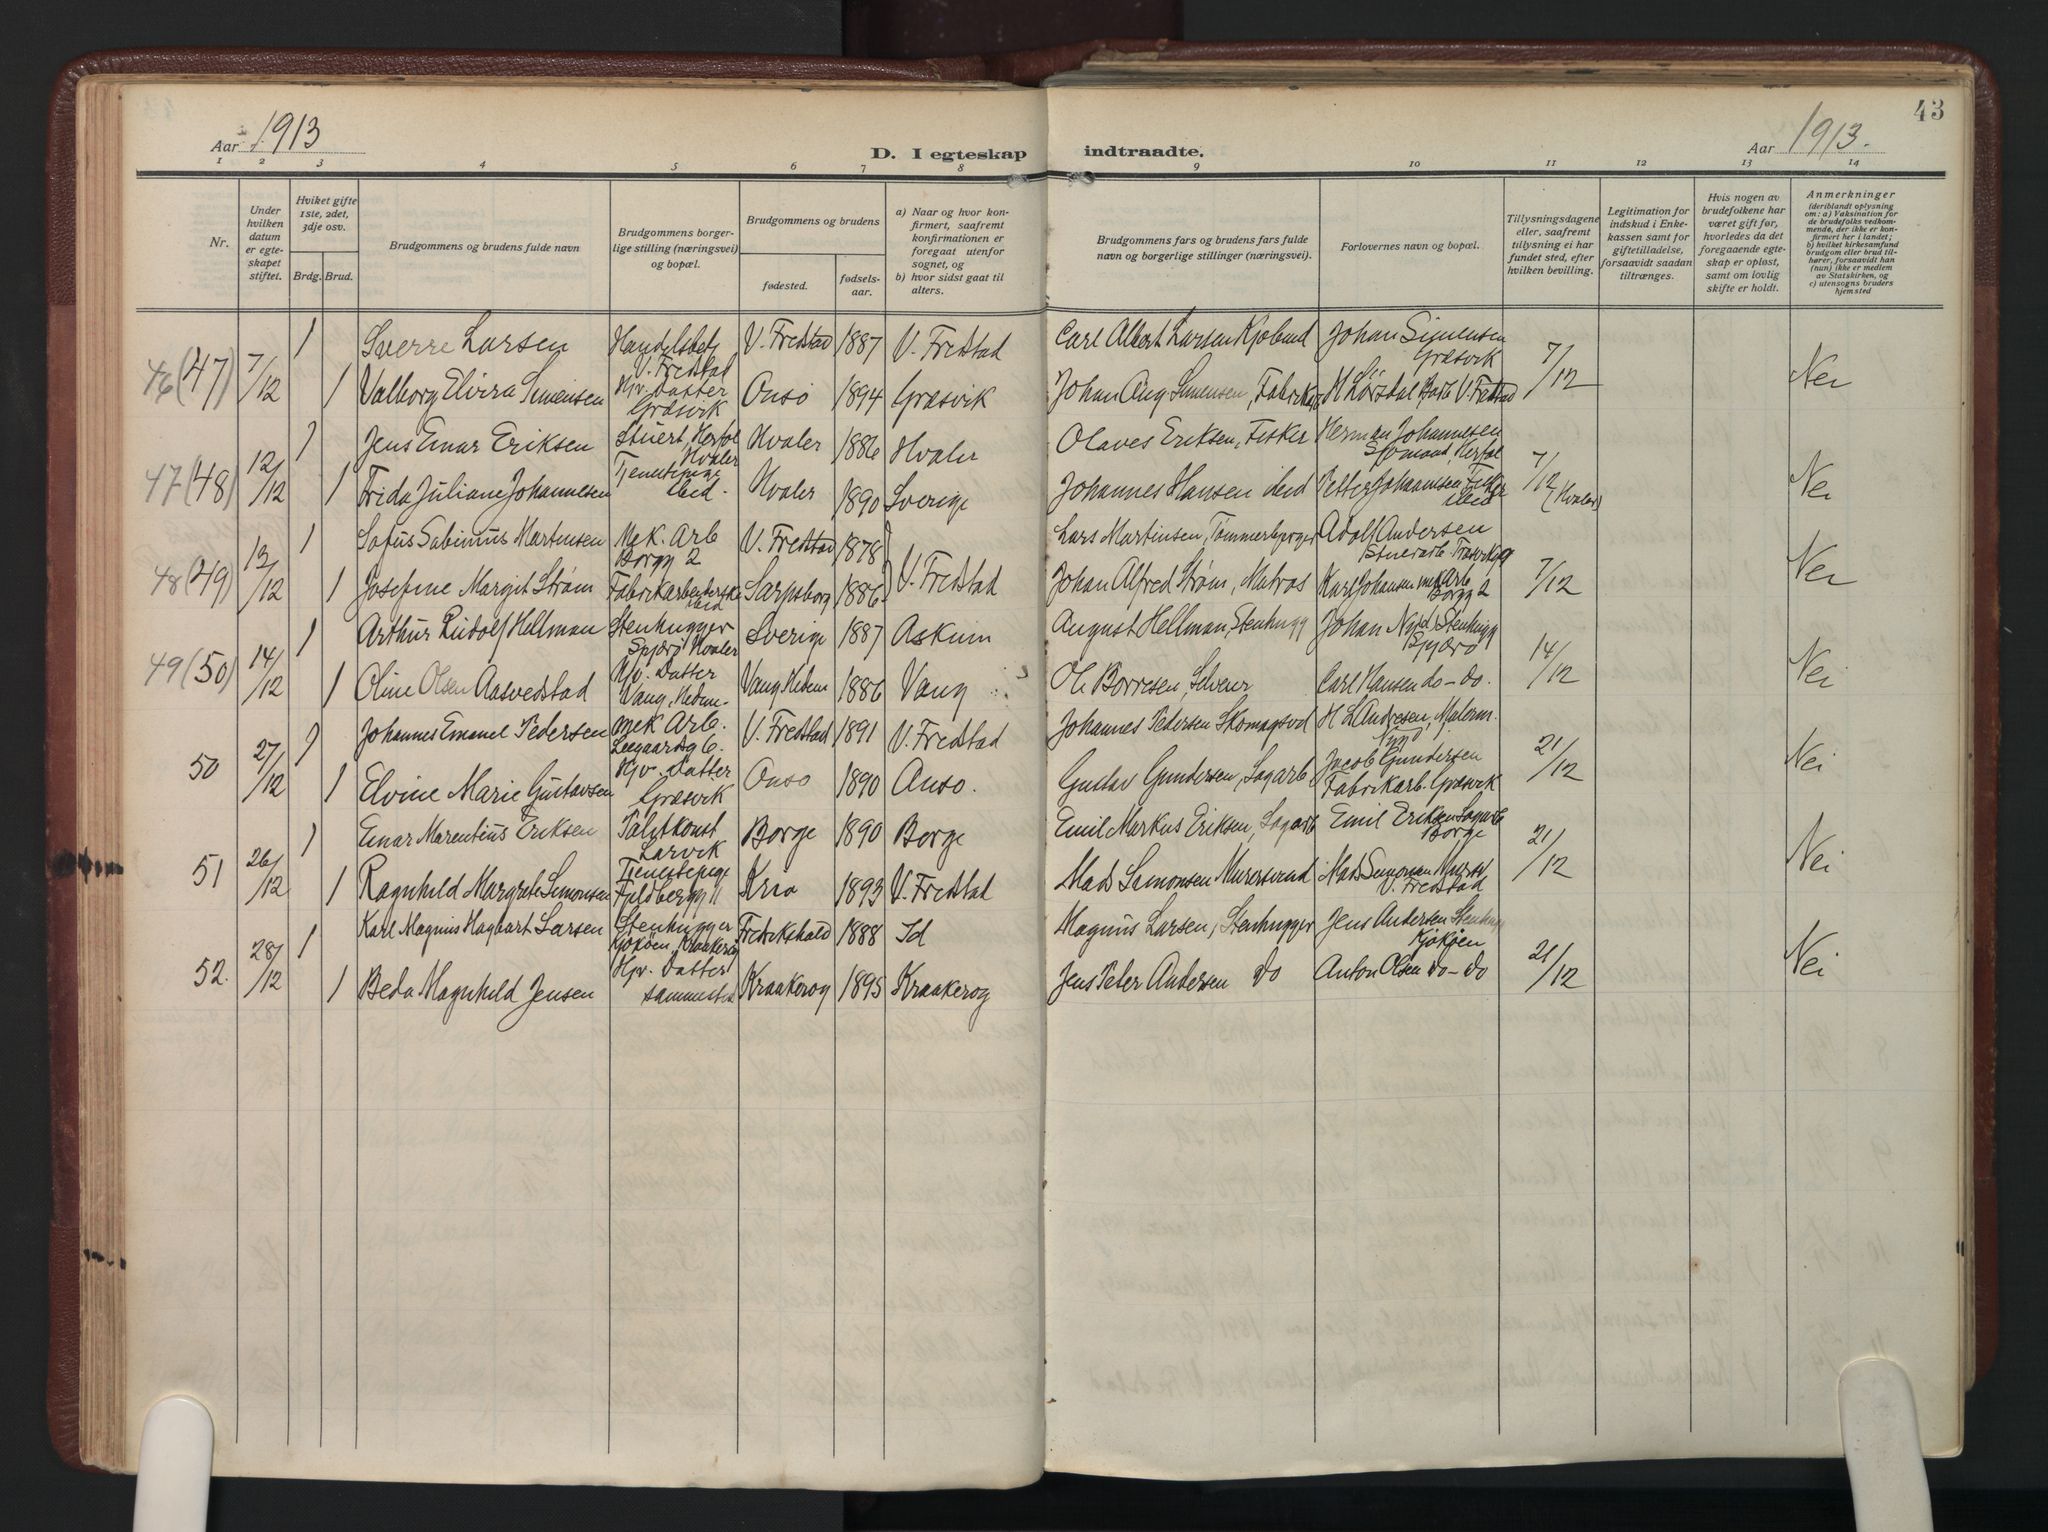 43
Aar 1913
D. I egteskap indtraadte.
Aar 1913.
1 2 3 4 5 6 7 8 9 10 11 12 13 14
Nr.
Under hvilken datum er egte-skapet stiftet.
Hviket gifte 1ste, 2det, 3dje osv.
Brdg. Brud.
Brudgommens og brudens fulde navn
Brudgommens borger-lige stilling (næringsvei) og bopæl.
Brudgommens og brudens
fødested.
fødsels-aar.
a) Naar og hvor kon-firmert, saafremt konfirmationen er foregaat utenfor sognet, og
b) hvor sidst gaat til alters.
Brudgommens fars og brudens fars fulde navn og borgerlige stillinger (næringsvei).
Forlovernes navn og bopæl.
Tillysningsdagene eller, saafremt tillysning ei har fundet sted, efter hvilken bevilling.
Legitimation for indskud i Enke-kassen samt for giftetilladelse, forsaavidt saadan tiltrænges.
Hvis nogen av brudefolkene har været gift før, hvorledes da det foregaaende egte-skap er opløst, samt om lovlig skifte er holdt.
Anmerkninger
(deriblandt oplysning om: a) Vaksination for de brudefolks vedkom-mende, der ikke er kon-firmert her i landet; b) hvilket kirkesamfund brudgom eller brud til-hører, forsaavidt han (hun) ikke er medlem av Statskirken, og c) utensogns bruders hjemsted
46 (47) 7/12 1 Sverre Larsen Handelsbetj V. Fredstad V. Fredstad 1887 V. Fredstad Carl Albert Larsen Kjøbmd Johan Simensen Græsvik 7/12 Nei
1 Valborg Elvira Simensen Hjv. Datter Græsvik Onsø 1894 Græsvik Johan Aug Simensen, Fabrikarb
47 (48) 12/12 1 Jens Einar Eriksen Stuert, Herføl Hvaler Hvaler 1886 Hvaler Olaves Eriksen, Fisker Herman Johannesen Sjømand, Herføl 7/12 (Hvaler) Nei
1 Frida Juliane Johannesen Tjenestepige ibid. Hvaler 1890 Sverige Johannes Hansen ibid Petter Johannesen Fisker ibid
48 (49) 13/12 1 Sofus Sabinius Martinsen Mek. Arb Borgg 2 V. Fredstad 1878 V. Fredstad Lars Martinsen, Tømmerbærger Adolf Andersen 7/12 Nei
1 Josefine Margit Strøm Fabrikarbeiderske ibid Sarpsborg 1886 Johan Alfred Strøm, Matros Karl Johansen mek Arb Borgg 2
49 (50) 14/12 1 Arthur Rudolf Hellman Stenhugger Spjærø Hvaler Sverige 1887 Askum August Hellman, Stenhugg Johan Stenhugg Spjærø 14/12 Nei
1 Oline Olsen Aasvedstad Hjv. Datter Vang, Hedm. Vang Hedm 1886 Vang Ole Borresen, Selveier Carl Hansen do - do.
50 27/12 1 Johannes Emanel Pedersen Mek Arb. V. Fredstad 1891 V. Fredstad Johannes Pedersen Skomagsvd H L Andresen, Malerm. 21/12 Nei
1 Elvine Marie Gustavsen Hjv. Datter Græsvik Onsø 1890 Onsø. Gustav Gundersen, Sagarb Jacob Gundersen Fabrikarb. Græsvik
51 26/12 1 Einar Marentius Eriksen Larvik Borge 1890 Borge Emil Markus Eriksen, Sagarb Emil Eriksen Sagarb Borge 21/12 Nei
1 Ragnhild Margrete Simonsen Tjenestepige Fjeldbergg 11 Kria 1893 V. Fredstad Mads Simonsen Murersvend Mads Simonsen V. Fredstad
52. 28/12 1 Karl Magnus Hagbart Larsen Stenhugger Kjøkøen, Kraakerøy Fredrikshald 1888 Id Magnus Larsen, Stenhugger Jens Andersen Stenhugg Kjøkøen 21/12 Nei
1 Beda Magnhild Jensen Hjv. Datter sammested Kraakerøy 1895 Kraakerøy Jens Peter Andersen do Anton Olsen do - do